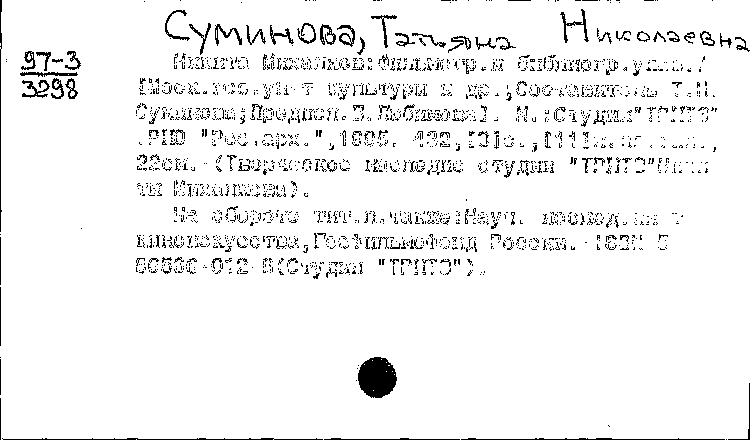 Суминова, Татьяна Николаевна
97-3
3298
Никита Михалков: Фильмогр. и библиогр. указ. /
[Моск. гос. ун-т культуры и др.; Составитель Т.Н.
Суминова; Предисл. Б. Любимова]. М.: Студия "ТРИТЭ"
. РИО "Рос. арх.", 1995. 432, [3]с., [11]л. ил.,
22см. (Творческое наследие студии "ТРИТЭ" Ники
ты Михалкова).
На обороте тит. л. также: Науч. исслед. ин т
киноискусства, Госфильмофонд России. ISBN 5
86566-012 (Студия "ТРИТЭ").